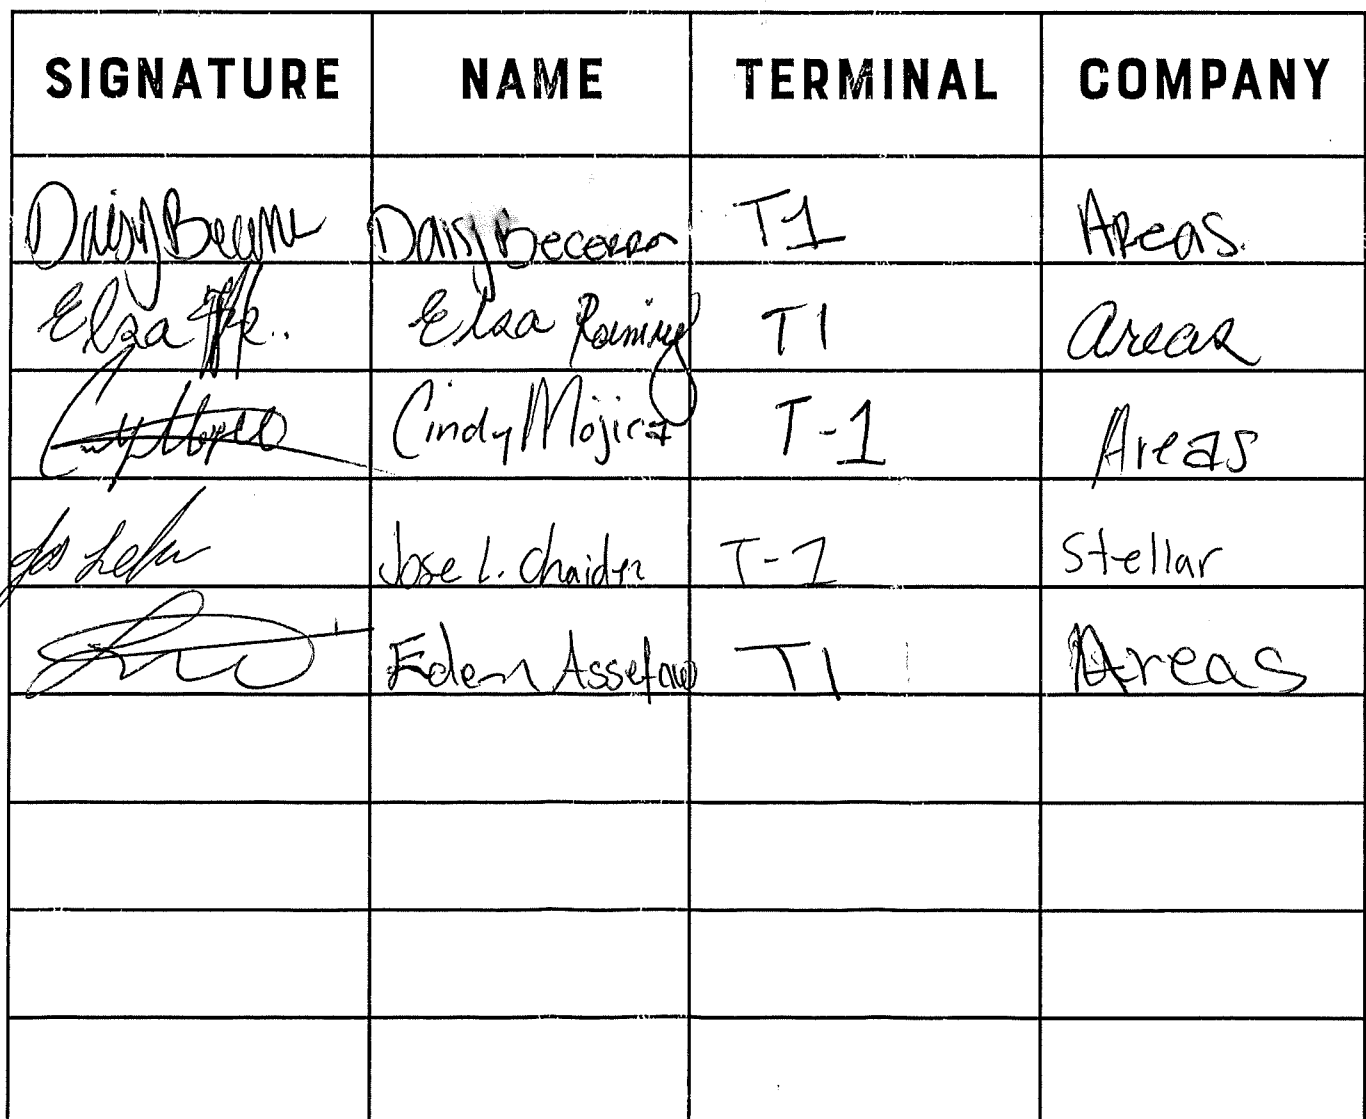 SIGNATURE NAME TERMINAL COMPANY
Daisy Becerra Daisy Becerra T1 Areas
Elsa Elsa Ramirez T1 Areas
Cindy Mojica T-1 Areas
Jose L. Chaidez T-1 Stellar
Eden Assefaw T1 Areas